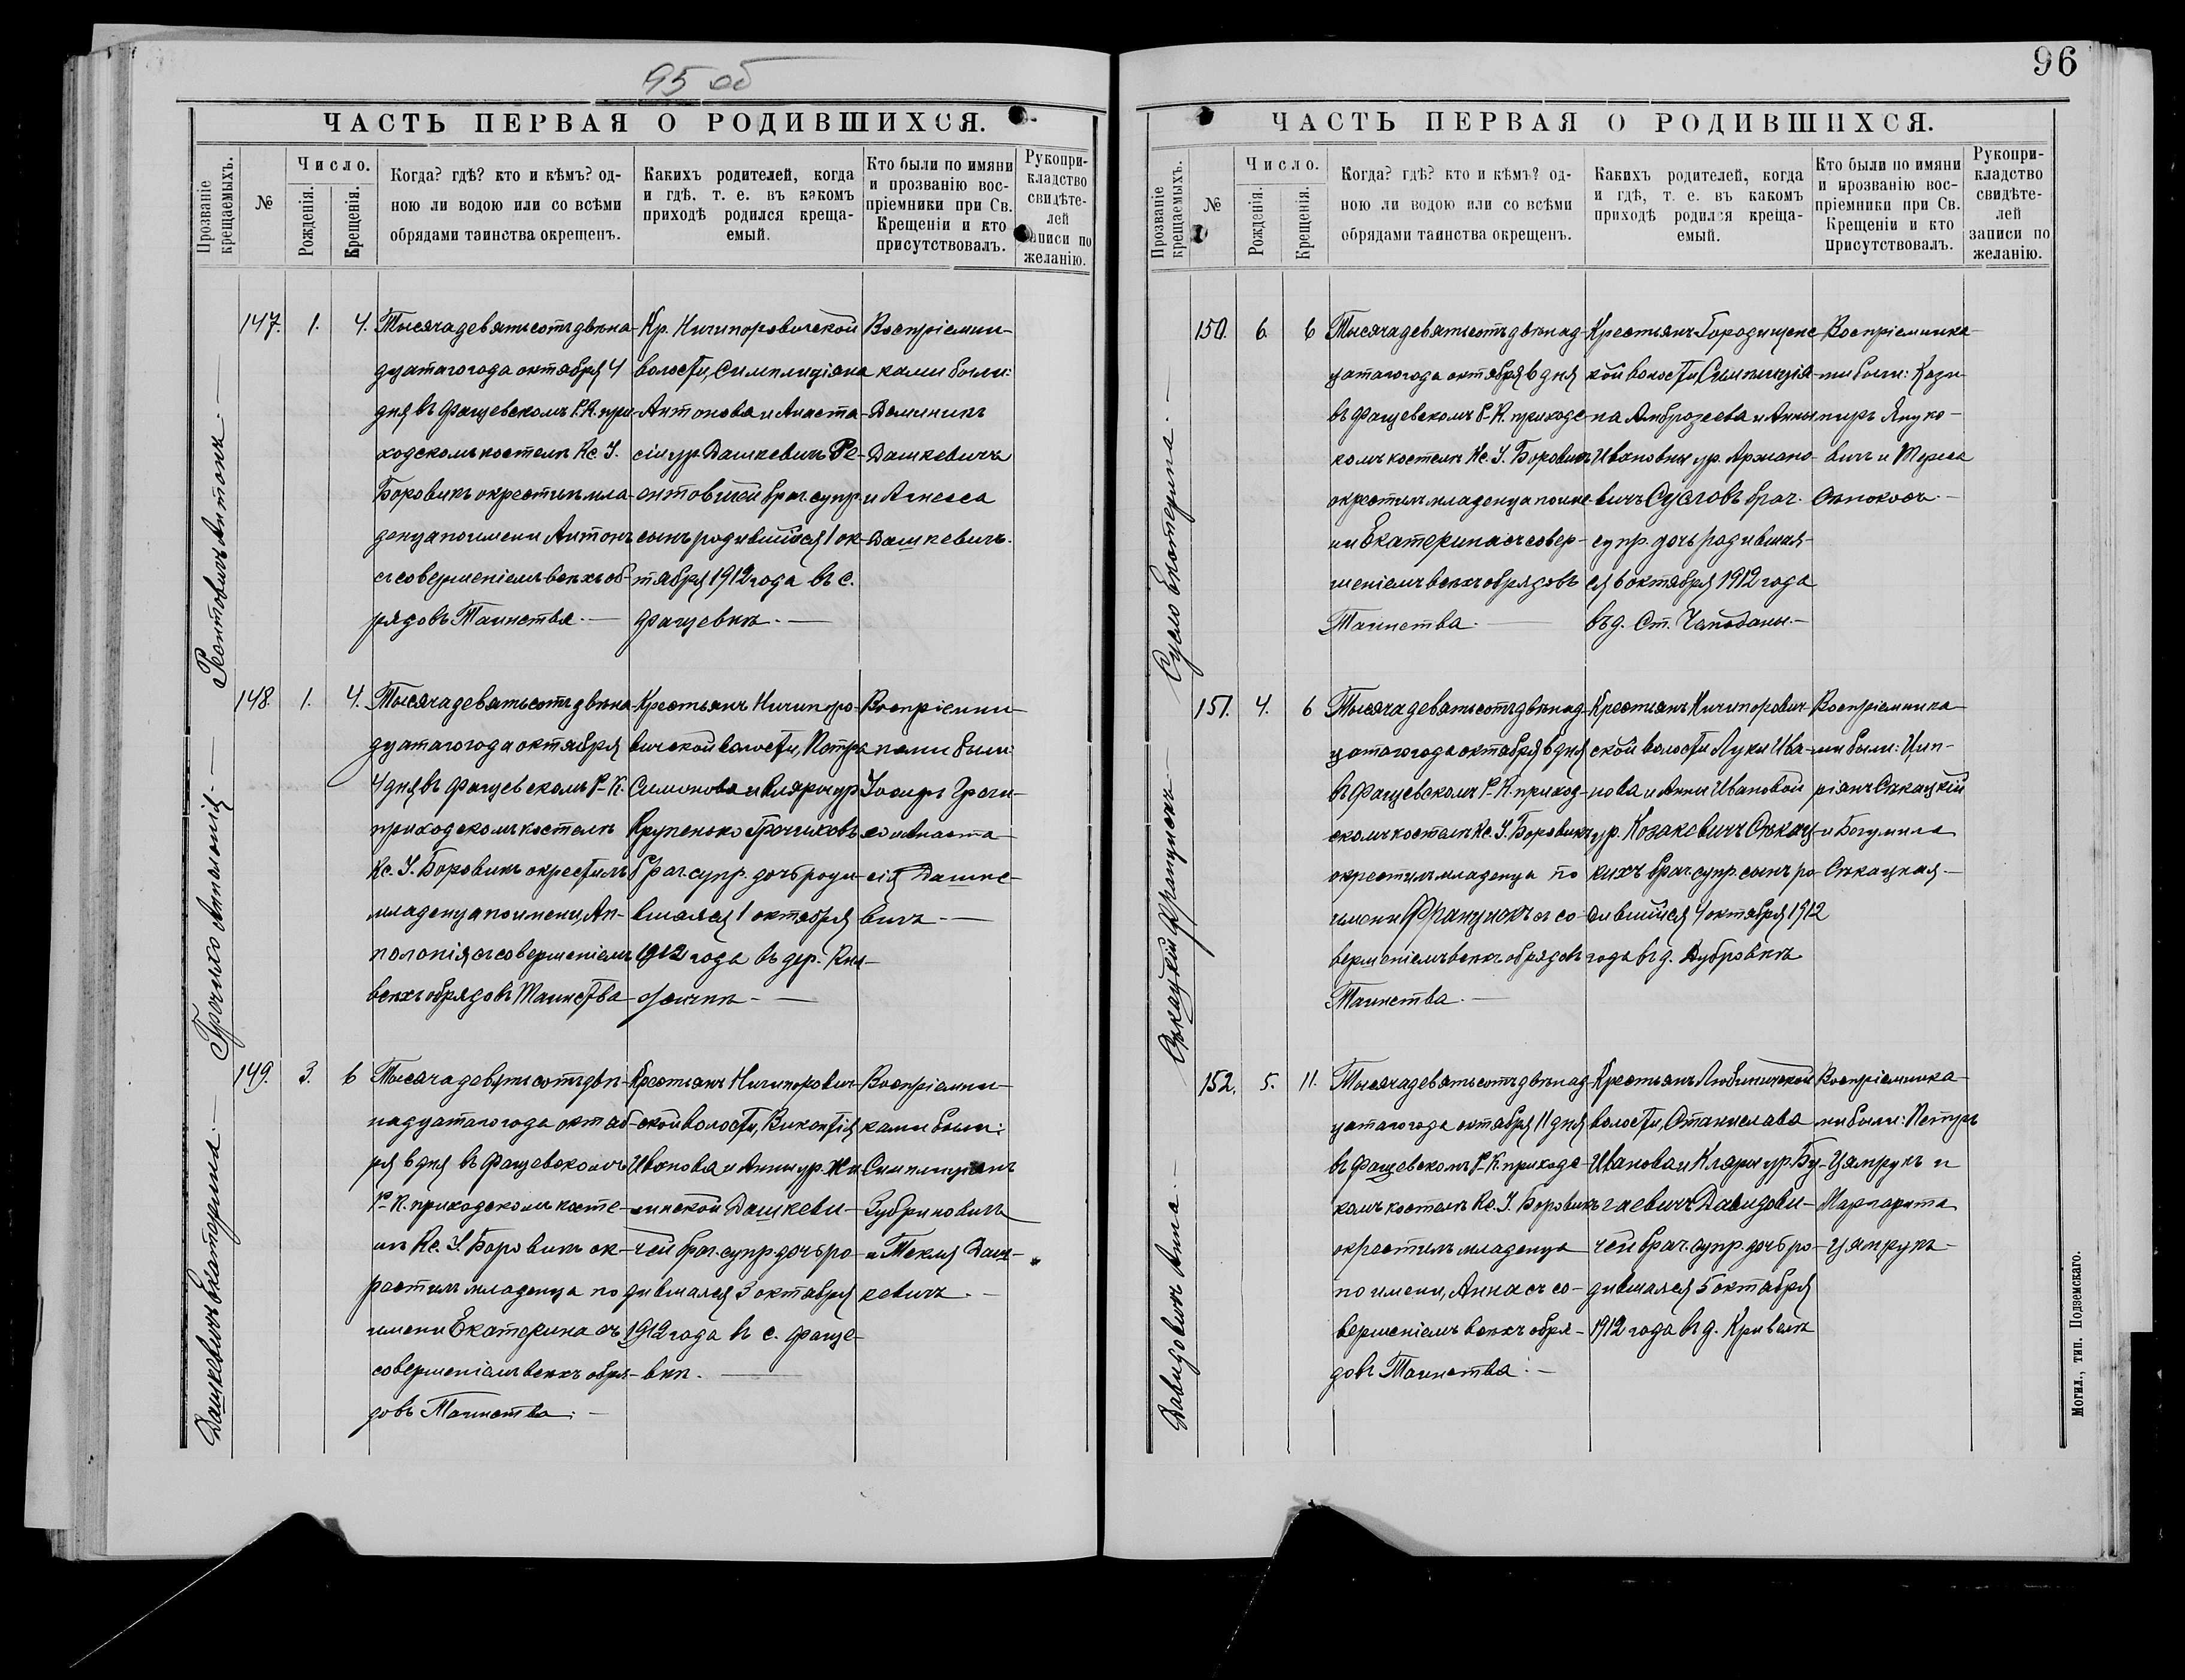 95 об
ЧАСТЬ ПЕРВАЯ О РОДИВШИХСЯ.
Прозваніе крещаемыхъ.
№
Число.
Рожденія.
Крещенія.
Когда? гдѣ? кто и кѣмъ? од-
ною ли водою или со всѣми
обрядами таинства окрещенъ.
Какихъ родителей, когда
и гдѣ, т. е. въ какомъ
приходѣ родился креща-
емый.
Кто были по имяни
и прозванію вос-
пріемники при Св.
Крещеніи и кто
присутствовалъ.
Рукопри-
кладство
свидѣте-
лей
записи по
желанію.
Реонтовичъ Антонъ. —
147. 1. 4.
Тысяча девятьсотъ двѣна-
дцатаго года октября 4
дня въ Фащевскомъ Р.К. при-
ходскомъ костелѣ Кс. І.
Боровикъ окрестилъ мла-
денца по имени Антонъ
съ совершеніемъ всѣхъ об-
рядовъ Таинства. —
Кр. Ничипоровичской
волости, Симплиціяна
Антонова и Анаста-
сіи ур. Дашкевичъ Ре-
онтовичей брач. супр.
сынъ родившійся 1 ок-
тября 1912 года въ с.
Фащевкѣ. —
Воспріемни-
ками были:
Доминикъ
Дашкевичъ
и Агнеса
Дашкевичъ.
Грочихо Апполонія. —
148. 1. 4.
Тысяча девятьсотъ двѣна-
дцатаго года октября
4 дня въ Фащевскомъ Р-К.
приходскомъ костелѣ
Кс. І. Боровикъ окрестилъ
младенца по имени, Ап-
полонія съ совершеніемъ
всѣхъ обрядовъ Таинства
Крестьянъ Ничипоро-
вичской волости, Петра
Симонова и Кляры ур.
Крупенько Грочиховъ
брач. супр. дочь роди-
вшаяся 1 октября
1912 года въ дер. Кня-
жичкѣ —
Воспріемни-
ками были:
Іосифъ Грочи-
хо и Анаста-
сія Дашке-
вичъ —
Дашкевичъ Екатерина. —
149. 3. 6
Тысяча девятьсотъ двѣ-
надцатаго года октяб-
ря 6 дня въ Фащевскомъ
Р-К. приходскомъ косте-
лѣ Кс. І. Боровикъ ок-
рестилъ младенца по
имени Екатерина съ
совершеніемъ всѣхъ обря-
довъ Таинства. —
Крестьянъ Ничипорович-
ской волости, Викентія
Иванова и Анны ур.
Дашкеви-
чей брач. супр. дочь ро-
дившаяся 3 октября
1912 года въ с. Фаще-
вкѣ. —
Воспріемни-
ками были:
Симплиціянъ
Зубриновичъ
и Текля Даш-
кевичъ. —
96
ЧАСТЬ ПЕРВАЯ О РОДИВШИХСЯ.
Прозваніе крещаемыхъ.
№
Число.
Рожденія.
Крещенія.
Когда? гдѣ? кто и кѣмъ? од-
ною ли водою или со всѣми
обрядами таинства окрещенъ.
Какихъ родителей, когда
и гдѣ, т. е. въ какомъ
приходѣ родился креща-
емый.
Кто были по имяни
и прозванію вос-
пріемники при Св.
Крещеніи и кто
присутствовалъ.
Рукопри-
кладство
свидѣте-
лей
записи по
желанію.
Сусло Екатерина. —
150. 6. 6
Тысяча девятьсотъ двѣнад-
цатаго года октября 6 дня
въ Фащевскомъ Р-К. приходс-
комъ костелѣ Кс. І. Боровикъ
окрестилъ младенца по име-
ни Екатерина съ совер-
шеніемъ всѣхъ обрядовъ
Таинства. —
Крестьянъ Городищенс-
кой волости, Симплиція-
на Амброзеева и Анны
Ивановны ур. Аржано-
вичъ Сусловъ брач.
супр. дочь родившая-
ся 6 октября 1912 года
въ д. Ст. Чамоданы. —
Воспріемника-
ми были: Кази-
миръ Януко-
вичъ и Тереса
Сѣнокосъ. —
Сѣкацкій Францискъ —
151. 4. 6
Тысяча девятьсотъ двѣнад-
цатаго года октября 6 дня
въ Фащевскомъ Р-К. приход-
скомъ костелѣ Кс. І. Боровикъ
окрестилъ младенца по
имени Францискъ съ со-
вершеніемъ всѣхъ обрядовъ
Таинства. —
Крестьянъ Ничипорович-
ской волости Луки Ива-
нова и Анны Ивановой
ур. Козакевичъ Сѣкац-
кихъ брач. супр. сынъ ро-
дившійся 4 октября 1912
года въ д. Дубровкѣ
Воспріемника-
ми были: Цип-
ріянъ Сѣкацкій
и Богумила
Сѣкацкая. —
Давидовичъ Анна. —
152. 5. 11.
Тысяча девятьсотъ двѣнад-
цатаго года октября 11 дня
въ Фащевскомъ Р-К. приходс-
комъ костелѣ Кс. І. Боровикъ
окрестилъ младенца
по имени, Анна съ со-
вершеніемъ всѣхъ обря-
довъ Таинства. —
Крестьянъ Любиничской
волости, Станислава
Иванова и Кляры ур. Бу-
гаевичъ Давидови-
чей брач. супр. дочь ро-
дившаяся 5 октября
1912 года въ д. Кривелѣ
Воспріемника-
ми были: Петръ
Цямрукъ и
Маргарита
Цямрукъ —
Могил., тип. Подземскаго.